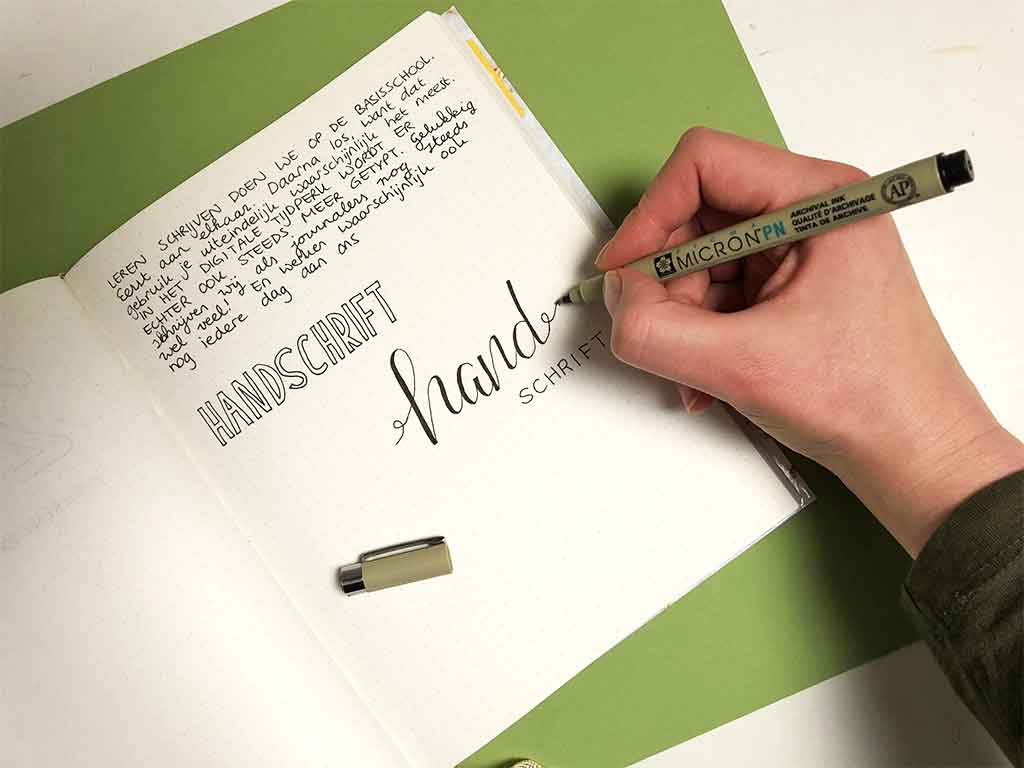 LEREN SCHRIJVEN DOEN WE OP DE BASISSCHOOL.
Eerst aan elkaar. Daarna los, want dat
gebruik je uiteindelijk waarschijnlijk het meest.
IN HET DIGITALE TIJDPERK WORDT ER
ECHTER OOK STEEDS MEER GETYPT. Gelukkig
schrijven wij als journalers nog steeds
wel veel! En werken waarschijnlijk ook
nog iedere dag aan ons
HANDSCHRIFT
hand
SCHRIFT
PIGMA
MICRON PN
ARCHIVAL INK
QUALITÉ D'ARCHIVAGE
TINTA DE ARCHIVE
AP